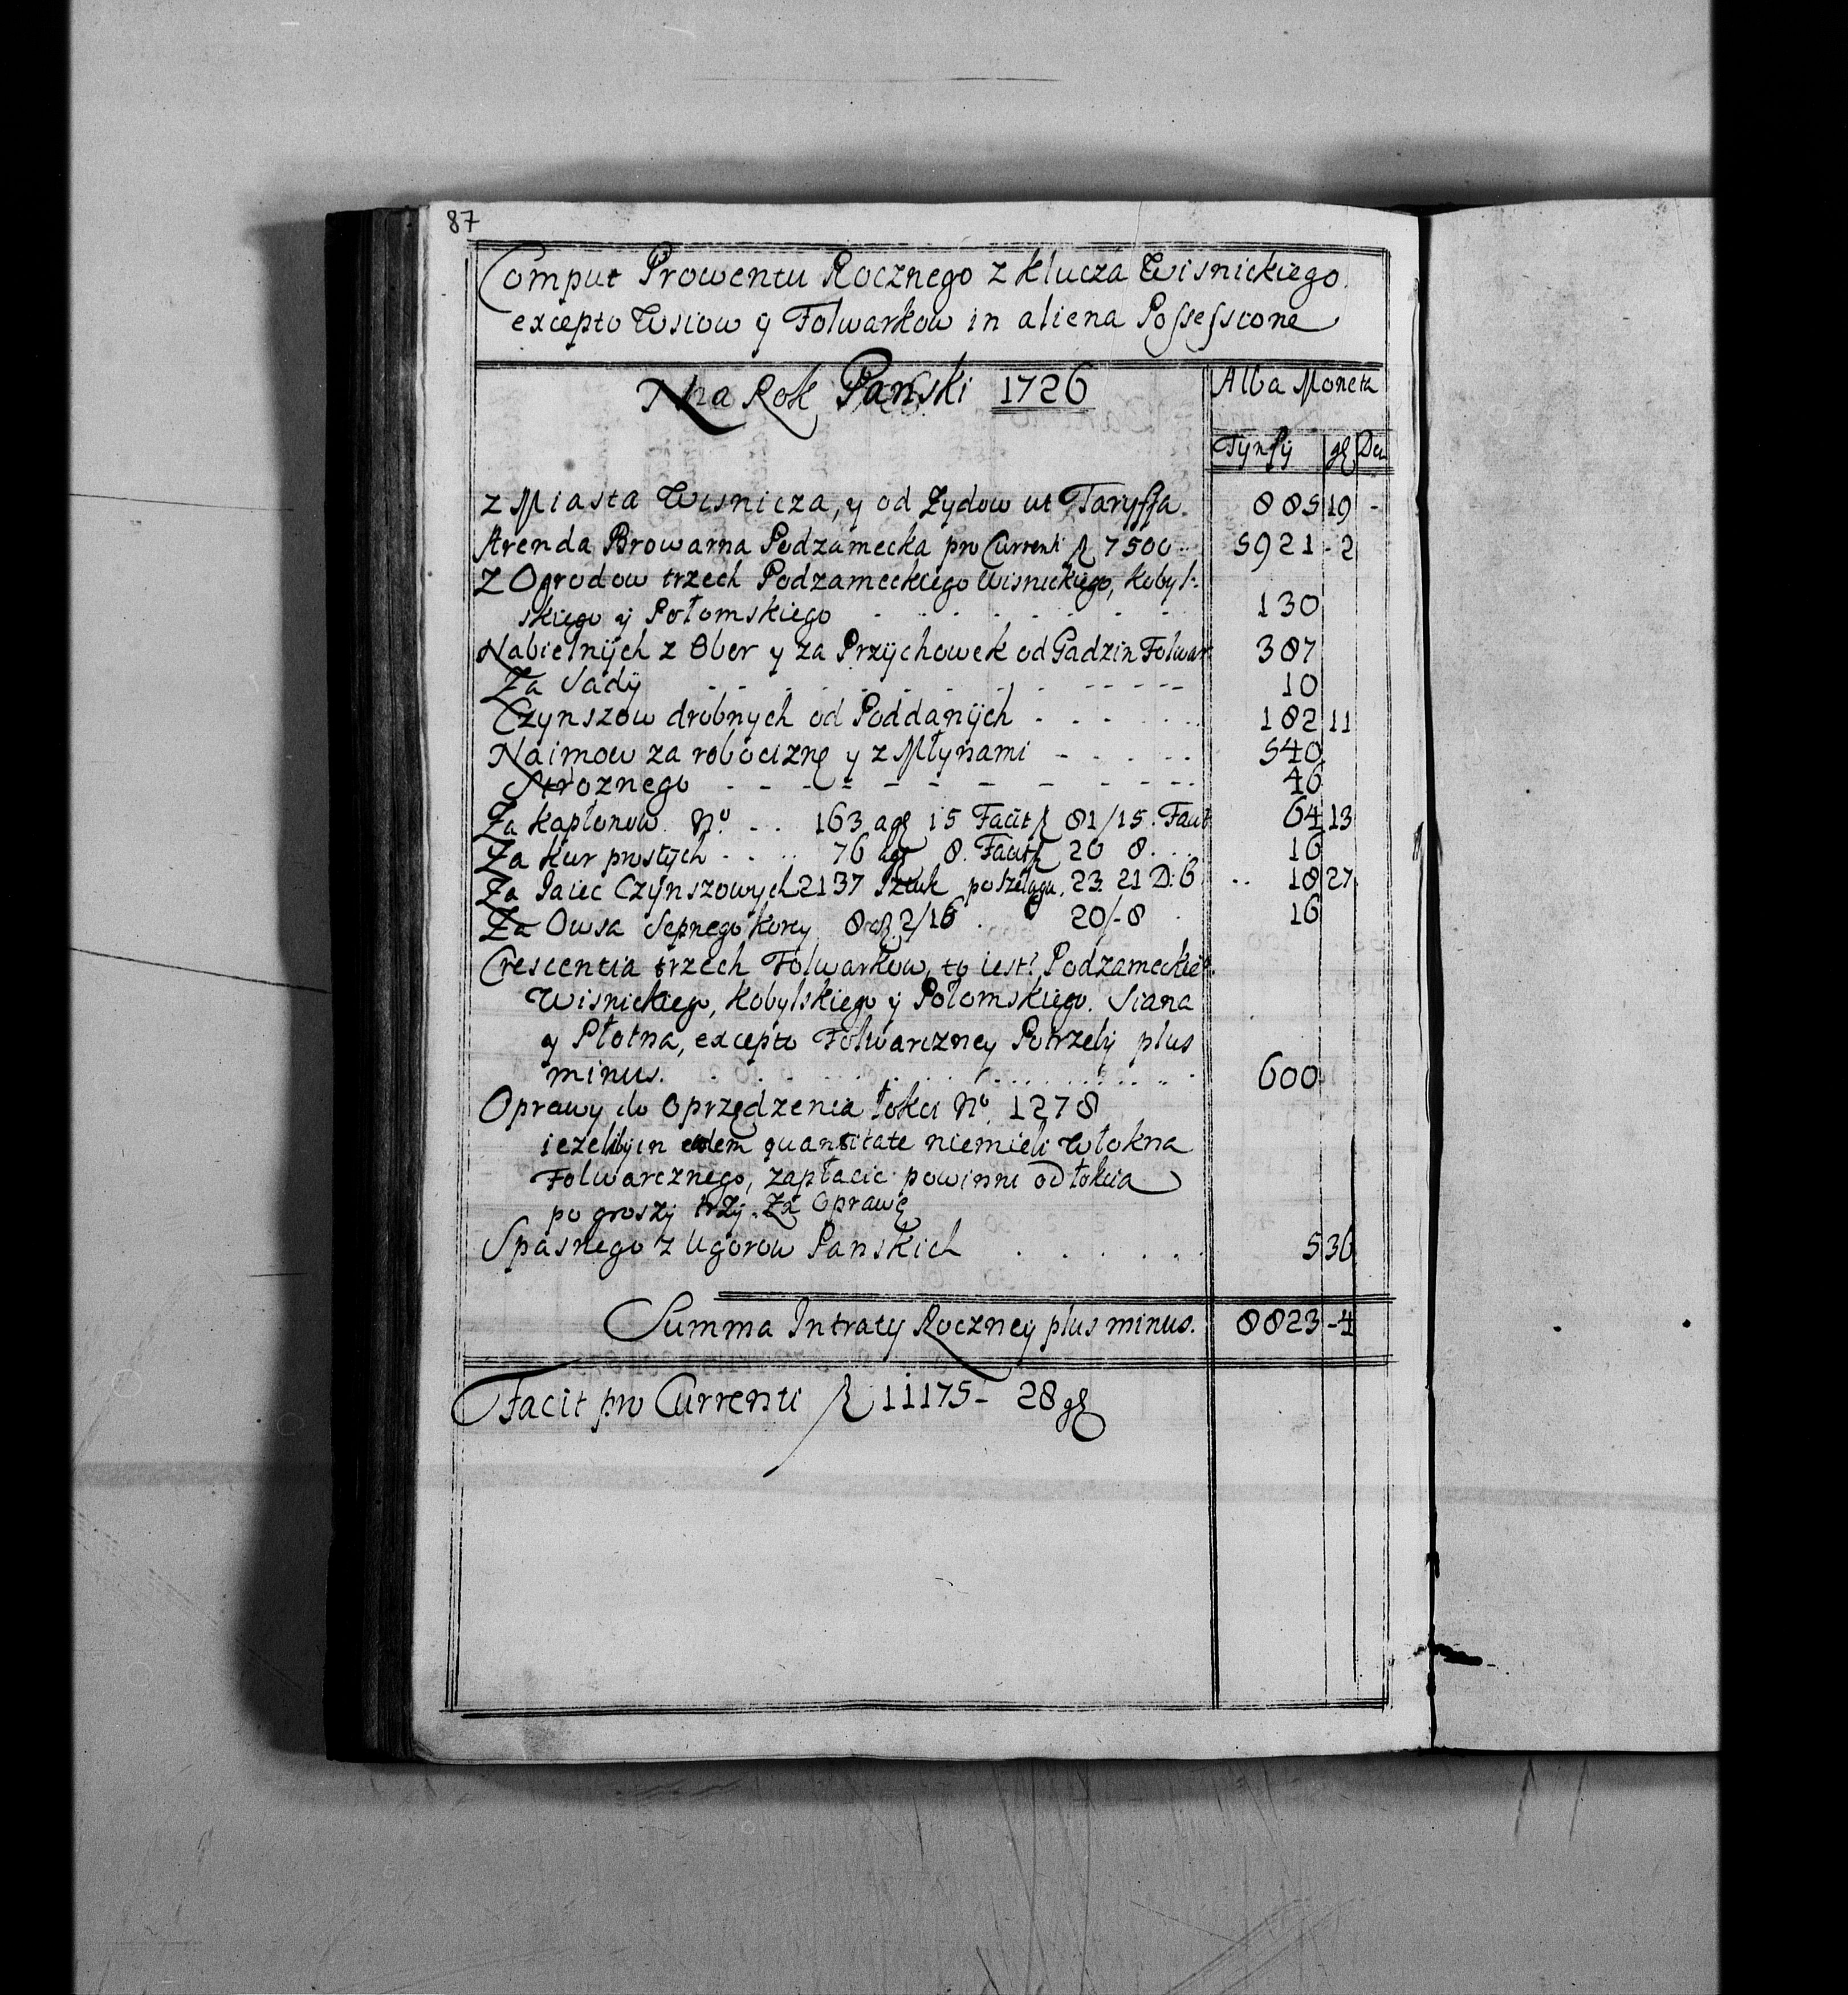 87
Comput Prowentu Rocznego z Klucza Wisnickiego.
excepto Wsiow y Folwarkow in aliena Possessione
Na Rok Panski 1726
Alba Moneta
Tynfy gł Den
z Miasta Wisnicza, y od Zydow ut Taryffa. 885 19 -
Arenda Browarna Podzamecka pro Currenti 7500 5921 - 2
Z Ogrodow trzech Podzameckiego Wisnickiego, Kobyl-
skiego y Połomskiego 130
Nabielnych z Obor y za Przychowek od Gadzin Folwar: 387
Za Sady 10
Czynszow drobnych od Poddanych 182 11
Naimow za robociznę y z Młynami 540
Stroznego 46
Za Kapłonow No. 163 a gł 15 Facit 81/15. Facit 64 13
Za Kur prostych 76 a gł 8. Facit 20 8. 16
Za Jaiec Czynszowych 2137 Sztuk po szelągu. 23. 21 D: 6 18 27
Za Owsa Sepnego Korcy 8 2/16 20/-8 16
Crescentia trzech Folwarkow, to iest: Podzameckie:
Wisnickiego, Kobylskiego y Połomskiego. Siana
y Płotna, excepto Folwarczney Potrzeby plus
minus. 600
Oprawy do Oprzędzenia łokci No. 1278
ieżeliby in eadem quantitate niemieli Włokna
Folwarcznego, zapłacic powinni od łokcia
po groszy trzy. Za Oprawę
Spasnego z Ugorow Panskich 5 36
Summa Intraty Roczney plus minus. 8823 - 4
Facit pro Currenti 11175 - 28 gł